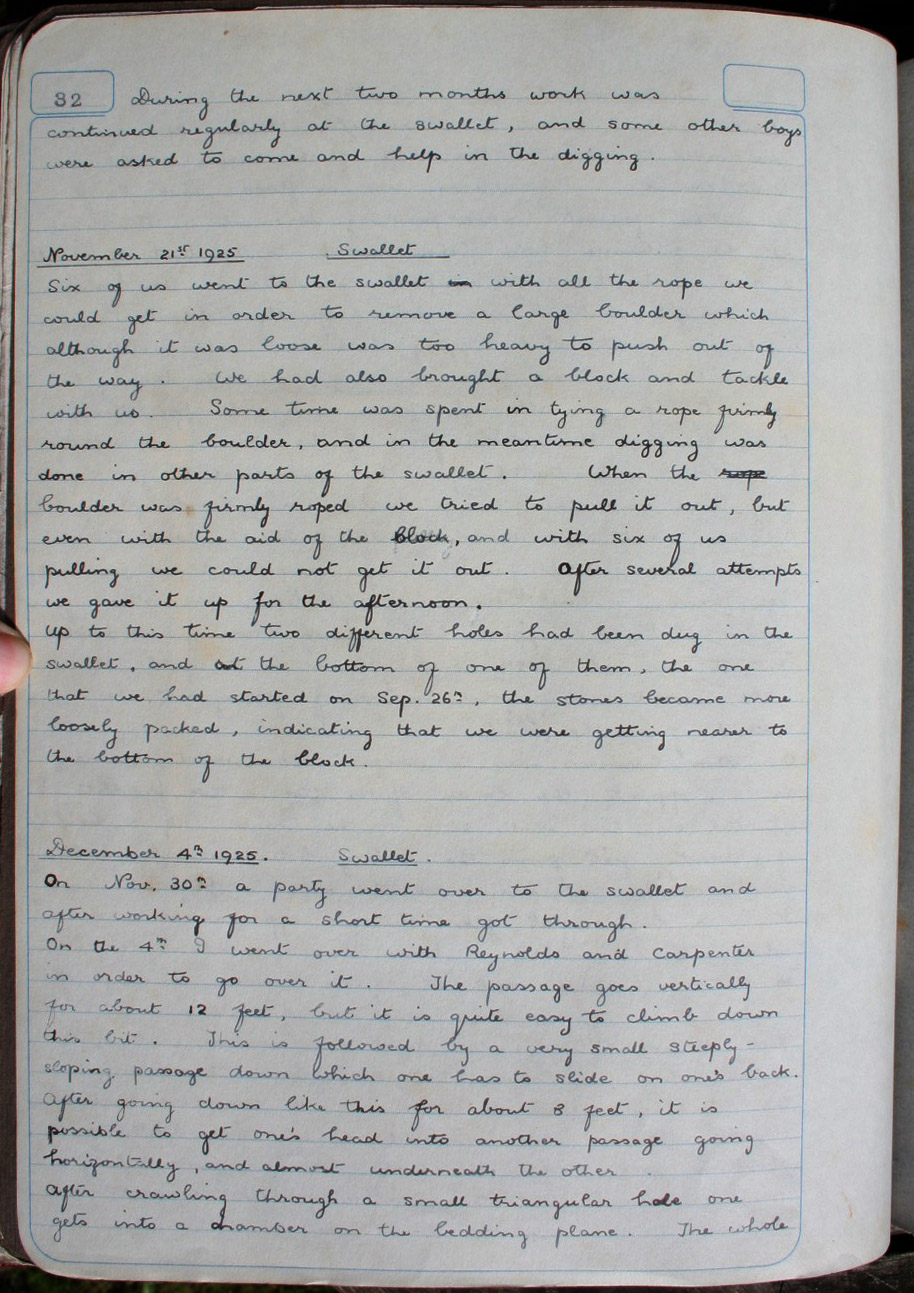 32 During the next two months work was
continued regularly at the swallet, and some other boys
were asked to come and help in the digging.
November 21st 1925 Swallet
Six of us went to the swallet in with all the rope we
could get in order to remove a large boulder which
although it was loose was too heavy to push out of
the way. We had also brought a block and tackle
with us. Some time was spent in tying a rope firmly
round the boulder, and in the meantime digging was
done in other parts of the swallet. When the rope
boulder was firmly roped we tried to pull it out, but
even with the aid of the block, and with six of us
pulling we could not get it out. After several attempts
we gave it up for the afternoon.
Up to this time two different holes had been dug in the
swallet, and at the bottom of one of them, the one
that we had started on Sep. 26th, the stones became more
loosely packed, indicating that we were getting nearer to
the bottom of the block.
December 4th 1925. Swallet.
On Nov. 30th a party went over to the swallet and
after working for a short time got through.
On the 4th I went over with Reynolds and Carpenter
in order to go over it. The passage goes vertically
for about 12 feet, but it is quite easy to climb down
this bit. This is followed by a very small steeply-
sloping passage down which one has to slide on one's back.
After going down like this for about 8 feet, it is
possible to get one's head into another passage going
horizontally, and almost underneath the other.
After crawling through a small triangular hole one
gets into a chamber on the bedding plane. The whole